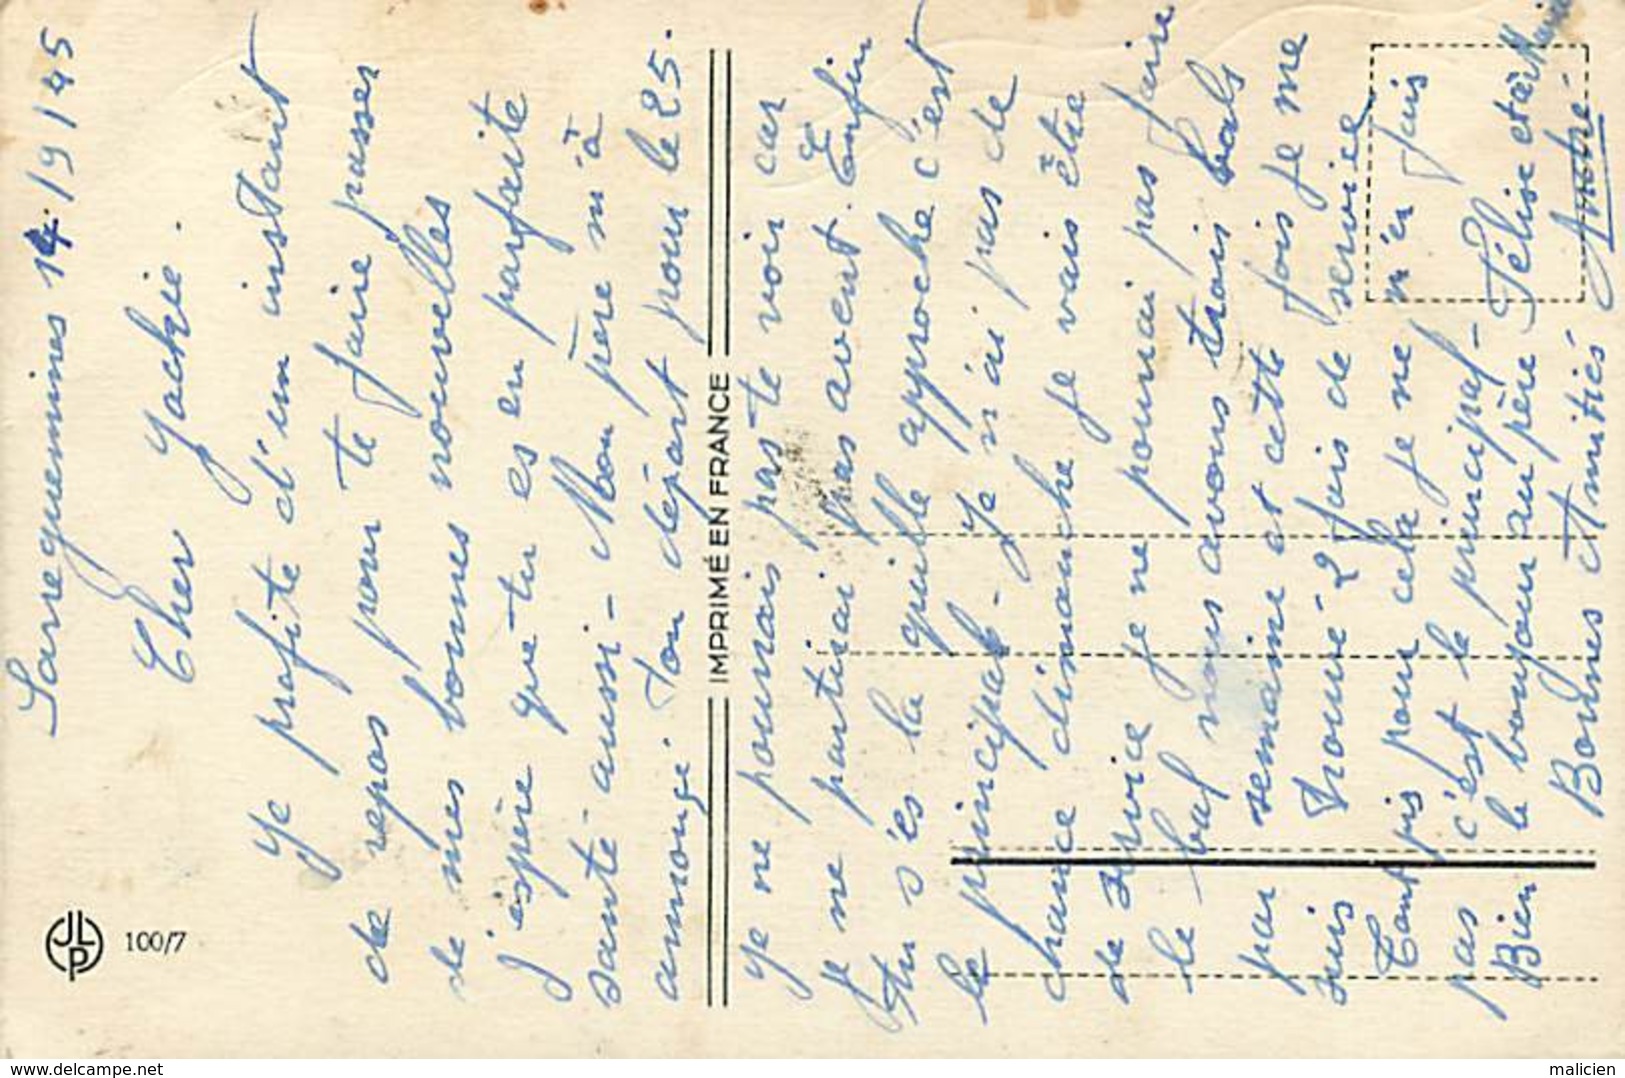 Sarreguemines 14/9/45
Cher Jackie.
Je profite d'un instant
de repos pour te faire passer
de mes bonnes nouvelles
J'espère que tu es en parfaite
santé aussi - Mon père m'à
annonçé ton départ pour le 25.
Je ne pourrais pas te voir car
Je ne partirai pas avent. Enfin
tu s'es la quille approche c'est
le principal - Je n'ai pas de
chance dimanche Je vais être
de service Je ne pourrai pas faire
le bal nous avons trois bals
par semaine et cette fois Je me
suis trouvé 2 fois de service
Tant pis pour cela Je ne m'en fais
pas c'est le principal -
Bien le bonjour au père Félise et à Marie
Bonnes Amitiés André
IMPRIMÉ EN FRANCE
JLP 100/7
www.delcampe.net
malicien